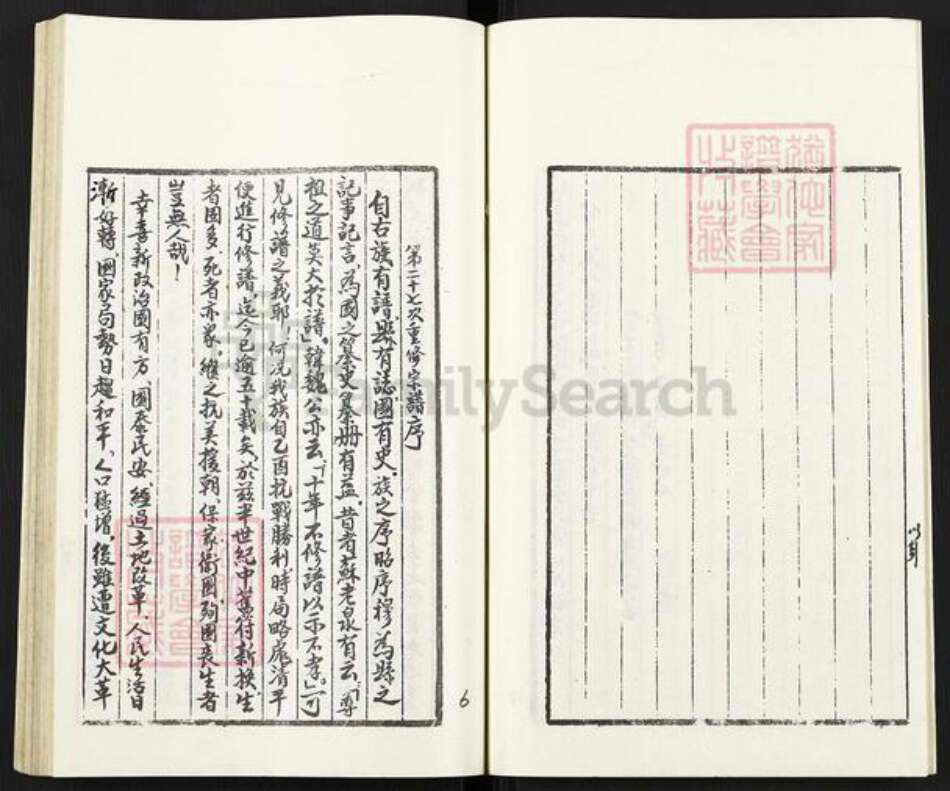 第二十七次重修宗譜序
自古族有譜、縣有誌、國有史。族之序昭序穆、為縣之
記事記言、為國之纂史纂册有益。昔者蘇老泉有云「尊
祖之道莫大於譜」。韓魏公亦云、「十年不修譜以示不孝。」可
見修譜之義耶！何况我族自乙酉抗戰勝利、時局略處清平
便進行修譜、迄今已逾五十載矣、於茲半世紀中、舊符新换、生
者固多、死者亦眾、維之抗美援朝、保家衛國、殉國喪生者
豈無人哉！
幸喜新政治國有方、國泰民安、經過土地改革、人民生活日
漸好轉、國家局勢日趨和平、人口猛增、後雖遭文化大革
6
FamilySearch